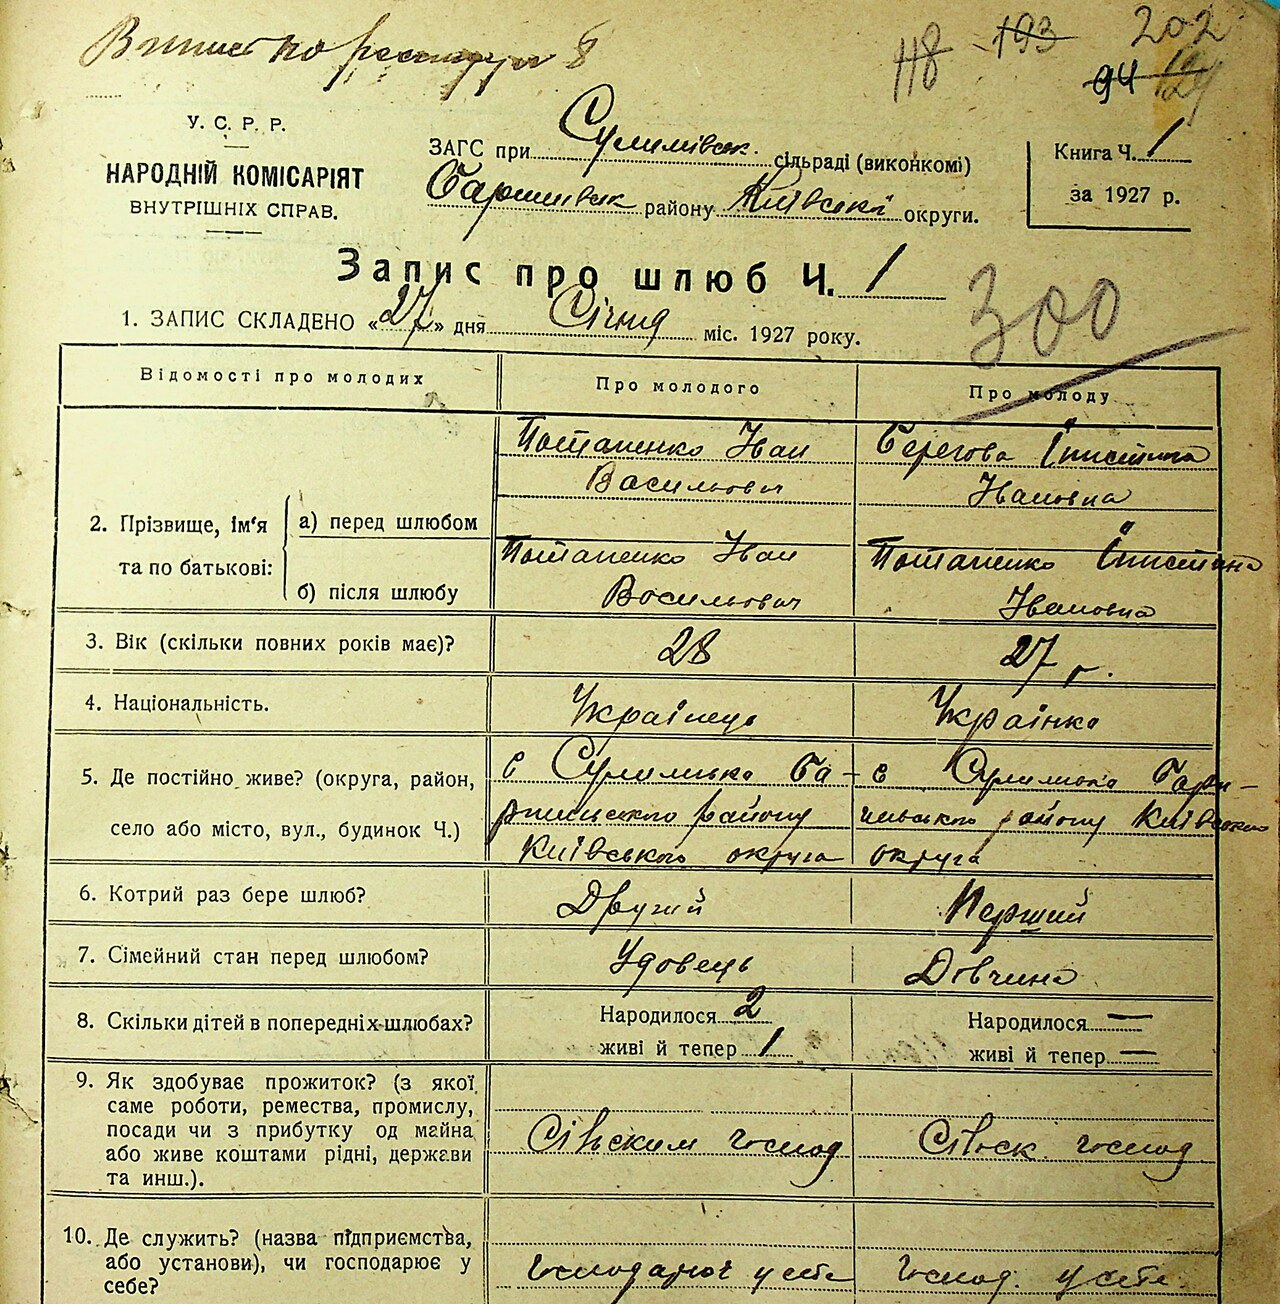 118 193 202
94 124
У. С. Р. Р.
НАРОДНІЙ КОМІСАРІЯТ
ВНУТРІШНІХ СПРАВ.
ЗАГС при Сулимівськ. сільраді (виконкомі)
Баришівськ району Київської округи.
Книга Ч. 1
за 1927 р.
Запис про шлюб Ч. 1
300
1. ЗАПИС СКЛАДЕНО «27» дня Січня міс. 1927 року.
Відомості про молодих Про молодого Про молоду
Потапенко Іван Берегова
Васильович Івановна
2. Прізвище, ім'я
та по батькові:
а) перед шлюбом
Потапенко Іван Потапенко
б) після шлюбу Васильович Івановна
3. Вік (скільки повних років має)? 28 27 г.
4. Національність. Українець Українка
5. Де постійно живе? (округа, район, с Сулимівка Ба- с Сулимівка Бари-
село або місто, вул., будинок Ч.) району району Київського
Київського округа округа
6. Котрий раз бере шлюб? Другий Перший
7. Сімейний стан перед шлюбом? Удовець Дівчина
8. Скільки дітей в попередніх шлюбах? Народилося 2 Народилося —
живі й тепер 1 живі й тепер —
9. Як здобуває прожиток? (з якої
саме роботи, ремества, промислу,
посади чи з прибутку од майна
або живе коштами рідні, держави
та инш.).
Сільским господ Сільск. господ
10. Де служить? (назва підприємства,
або установи), чи господарює у
себе?
господарює у себе господ. у себе